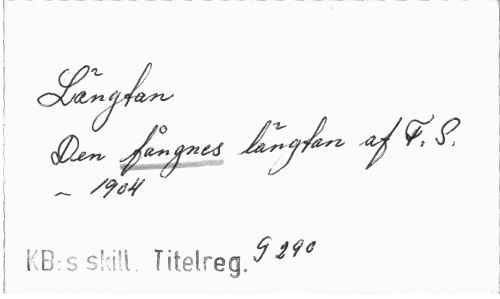 Längtan
Den fångnes längtan af F. S.
~ 1904
KB:s skill. Titelreg. G 290